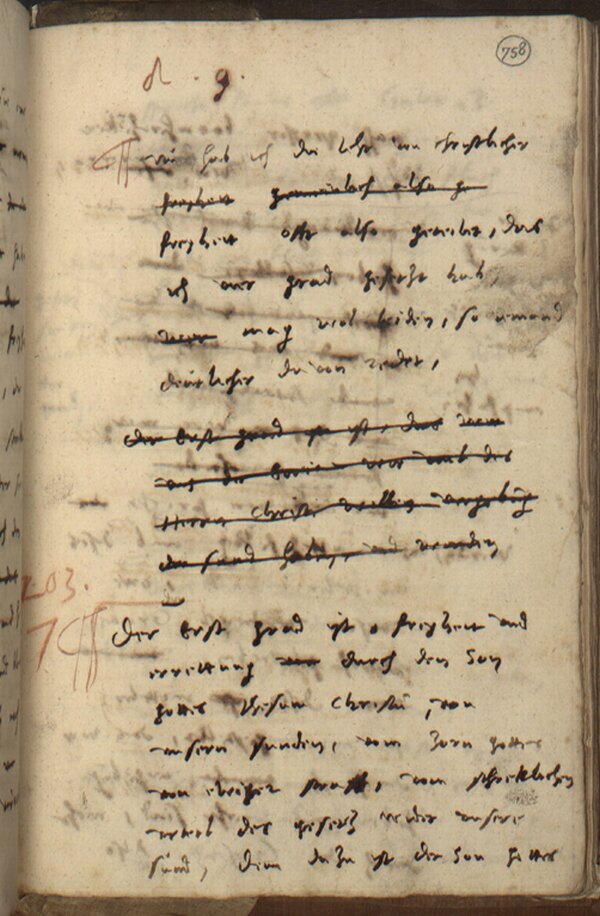 758
Nu hab ich die Lehr von christlicher
freyheit gemeinlich also ge
freyheit offt also geteilet, das
ich vier grad gesetzt hab,
mag wol leiden, so iemand
deutlicher davon redet,
Der Erst grad ist, das wir
aus der vnd des
Herrn Christi willen vergebung
der sund haben, vnd werden
203.
Der Erst grad ist freyheit vnd
errettung durch den Son
gottes Jhesum Christum, von
vnsern sunden, vom Zorn gottes
von ewiger straff, vom schreklichen
vrteil des gesetz wider vnsere
sund, denn dazu ist der Son gottes